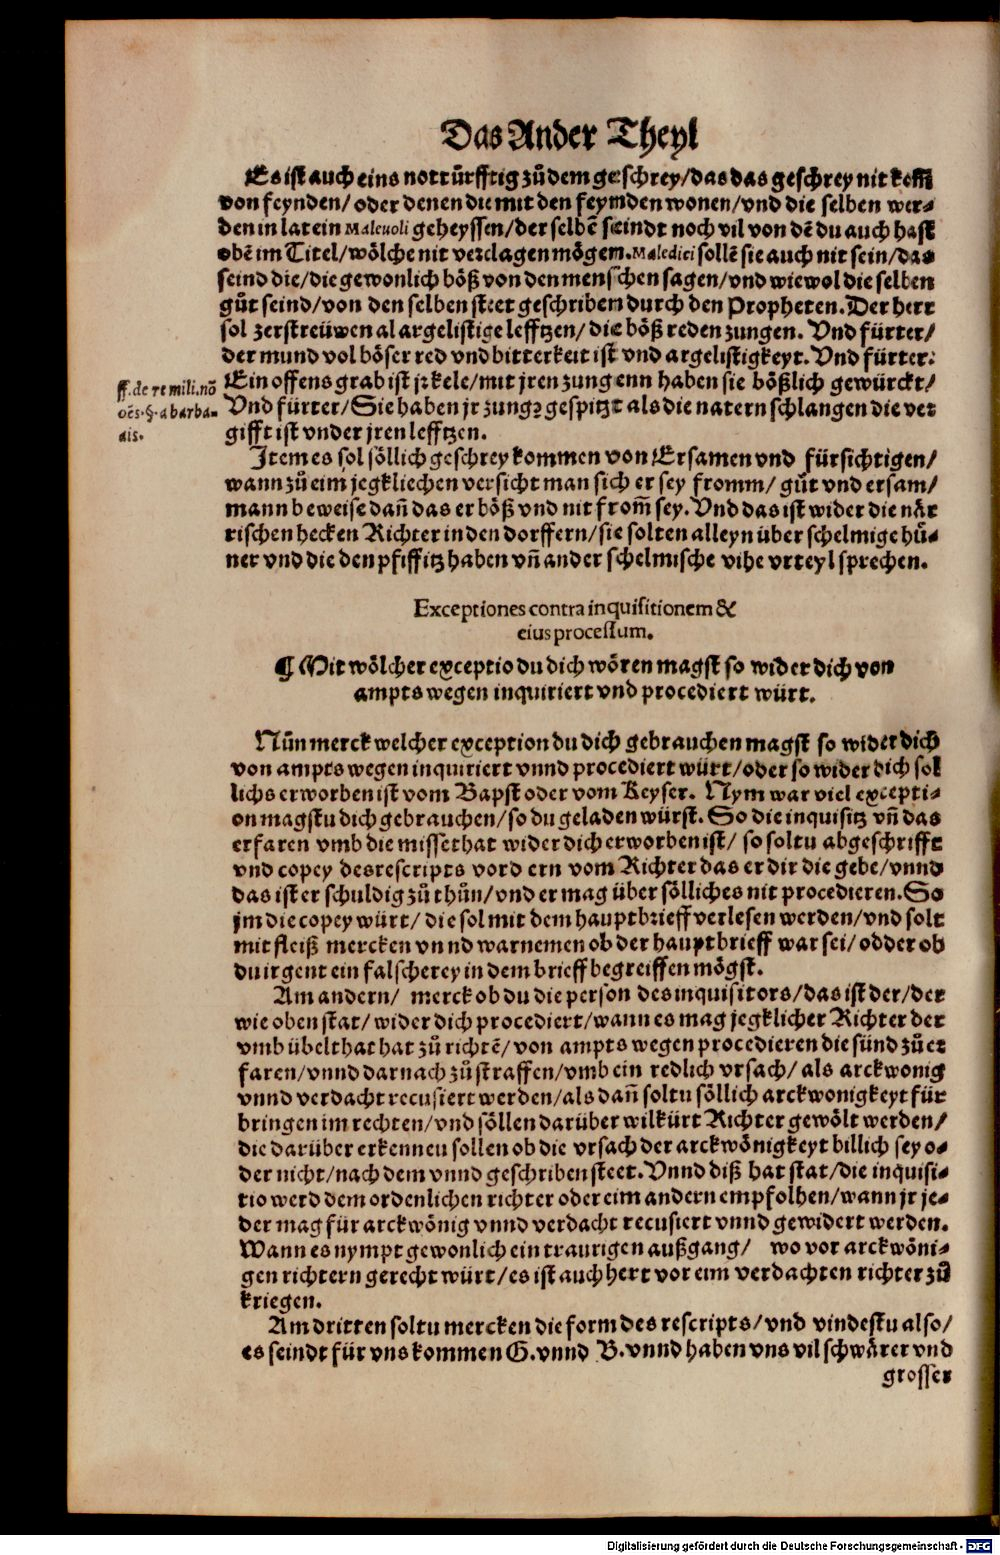 Das Ander Theyl
Es ist auch eins notturfftig zů dem geschrey/das das geschrey nit kom̃
von feynden/ oder denen die mit den feymden wonen/vnd die selben wer-
den in latein Maleuoli geheyssen/der selbẽ seindt noch vil von dẽ du auch hast
obẽ im Titel/wölche nit verclagen mögem. Maledici sollẽ sie auch nit sein/das
seind die/die gewonlich böß von den menschen sagen/vnd wiewol die selben
gůt seind/von den selben steet geschriben durch den Propheten. Der herr
sol zerstreüwen al argelistige lefftzen/ die böß reden zungen. Vnd fürter/
der mund vol böser red vnd bitterkeit ist vnd argelistigkeyt. Vnd fürter:
Ein offens grab ist jr kele/mit jren zung enn haben sie bößlich gewürckt/
Vnd fürter/Sie haben jr zung gespitzt als die natern schlangen die ver
gifft ist vnder jren lefftzen.
ff. de re mili. nõ
oẽs. §. a barba-
ris.
Item es sol söllich geschrey kommen von Ersamen vnd fürsichtigen/
wann zů eim jegkliechen versicht man sich er sey fromm/ gůt vnd ersam/
mann beweise dañ das er böß vnd nit from̃ sey. Vnd das ist wider die när
rischen hecken Richter in den dorffern/sie solten alleyn über schelmige hů-
ner vnd die den pfiffitz haben vñ ander schelmische vihe vrteyl sprechen.
Exceptiones contra inquisitionem &
eius processum.
¶ Mit wölcher exceptio du dich wören magst so wider dich von
ampts wegen inquiriert vnd procediert würt.
Nůn merck welcher exception du dich gebrauchen magst so wider dich
von ampts wegen inquiriert vnnd procediert würt/oder so wider dich sol
lichs erworben ist vom Bapst oder vom Keyser. Nym war viel excepti-
on magstu dich gebrauchen/so du geladen würst. So die inquisitz vñ das
erfaren vmb die missethat wider dich erworben ist/ so soltu abgeschrifft
vnd copey des rescripts vord ern vom Richter das er dir die gebe/vnnd
das ist er schuldig zů thůn/vnd er mag über sölliches nit procedieren. So
jm die copey würt/ die sol mit dem hauptbrieff verlesen werden/vnd solt
mit fleiß mercken vn nd warnemen ob der hauptbrieff war sei/ odder ob
du irgent ein falscherey in dem brieff begreiffen mögst.
Am andern/ merck ob du die person des inquisitors/das ist der/der
wie oben stat/wider dich procediert/wann es mag jegklicher Richter der
vmb übelthat hat zů richtẽ/von ampts wegen procedieren die sünd zů er
faren/vnnd darnach zů straffen/vmb ein redlich vrsach/ als arckwonig
vnnd verdacht recusiert werden/als dañ soltu söllich arckwonigkeyt für
bringen im rechten/vnd söllen darüber wilkürt Richter gewölt werden/
die darüber erkennen sollen ob die vrsach der arckwönigkeyt billich sey o-
der nicht/nach dem vnnd geschriben steet. Vnnd diß hat stat/die inquisi-
tio werd dem ordenlichen richter oder eim andern empfolhen/wann jr je-
der mag für arckwönig vnnd verdacht recusiert vnnd gewidert werden.
Wann es nympt gewonlich ein traurigen außgang/ wo vor arckwöni-
gen richtern gerecht würt/es ist auch hert vor eim verdachten richter zů
kriegen.
Am dritten soltu mercken die form des rescripts/vnd vindestu also/
es seindt für vns kommen G. vnnd B. vnnd haben vns vil schwärer vnd
grosser
Digitalisierung gefördert durch die Deutsche Forschungsgemeinschaft - DFG